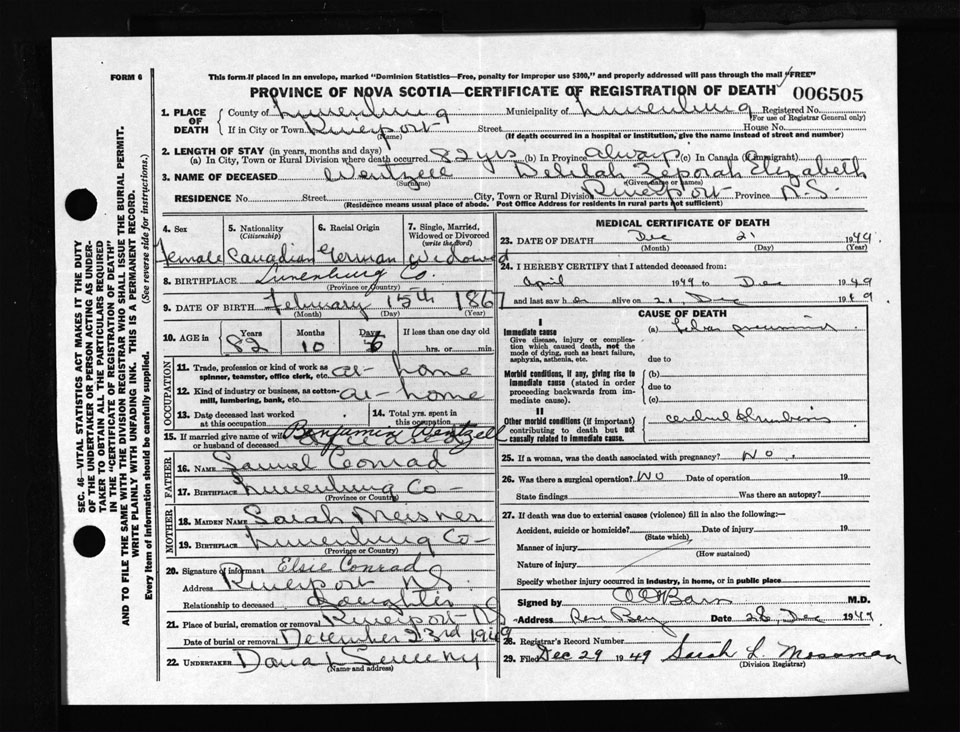 FORM 6
This form if placed in an envelope, marked "Dominion Statistics—Free, penalty for improper use $300," and properly addressed will pass through the mail "FREE"
PROVINCE OF NOVA SCOTIA—CERTIFICATE OF REGISTRATION OF DEATH
006505
1. PLACE OF DEATH
County of Lunenburg Municipality of Lunenburg Registered No.
(For use of Registrar General only)
If in City or Town Riverport Street House No.
(Name) (If death occurred in a hospital or institution, give the name instead of street and number)
2. LENGTH OF STAY (in years, months and days)
(a) In City, Town or Rural Division where death occurred 82 yrs (b) In Province always (c) In Canada (if immigrant)
3. NAME OF DECEASED Wentzell Delilah Zeporah Elizabeth
(Surname) (Given name or names)
RESIDENCE No. Street City, Town or Rural Division Riverport Province N.S.
(Residence means usual place of abode. Post Office Address for residents in rural parts not sufficient)
4. Sex Female
5. Nationality (Citizenship) Canadian
6. Racial Origin German
7. Single, Married, Widowed or Divorced (write the word) Widowed
8. BIRTHPLACE Lunenburg Co.
(Province or Country)
9. DATE OF BIRTH February 15th 1867
(Month) (Day) (Year)
10. AGE Years Months Days If less than one day old
82 10 6 hrs. or min.
OCCUPATION
11. Trade, profession or kind of work as spinner, teamster, office clerk, etc. at home
12. Kind of industry or business, as cotton-mill, lumbering, bank, etc. at home
13. Date deceased last worked at this occupation
14. Total yrs. spent in this occupation
15. If married give name of wife or husband of deceased Benjamin Wentzell
FATHER
16. NAME Samuel Conrad
17. BIRTHPLACE Lunenburg Co
(Province or Country)
MOTHER
18. MAIDEN NAME Sarah Meisner
19. BIRTHPLACE Lunenburg Co
(Province or Country)
20. Signature of informant Elsie Conrad
Address Riverport N.S.
Relationship to deceased Daughter
21. Place of burial, cremation or removal Riverport NS
Date of burial or removal December 23rd 1949
22. UNDERTAKER Sweeny
(Name and address)
MEDICAL CERTIFICATE OF DEATH
23. DATE OF DEATH Dec 21 1949
(Month) (Day) (Year)
24. I HEREBY CERTIFY that I attended deceased from:
April 1949 to Dec 1949
and last saw her alive on 21, Dec 1949
CAUSE OF DEATH
I
Immediate cause
Give disease, injury or complication which caused death, not the mode of dying, such as heart failure, asphyxia, asthenia, etc.
(a) pneumonia
due to
Morbid conditions, if any, giving rise to immediate cause (stated in order proceeding backwards from immediate cause).
(b)
due to
(c)
II
Other morbid conditions (if important) contributing to death but not causally related to immediate cause.
25. If a woman, was the death associated with pregnancy? No.
26. Was there a surgical operation? No Date of operation 19
State findings Was there an autopsy?
27. If death was due to external causes (violence) fill in also the following:—
Accident, suicide or homicide? Date of injury 19
(State which)
Manner of injury
(How sustained)
Nature of injury
Specify whether injury occurred in industry, in home, or in public place
Signed by M.D.
Address Date 28, Dec 1949
28. Registrar's Record Number
29. Filed Dec 29 1949 Sarah L. Mossman
(Division Registrar)
SEC. 46—VITAL STATISTICS ACT MAKES IT THE DUTY
OF THE UNDERTAKER OR PERSON ACTING AS UNDERTAKER
TO OBTAIN ALL THE PARTICULARS REQUIRED
IN THE "CERTIFICATE OF REGISTRATION OF DEATH"
AND TO FILE THE SAME WITH THE DIVISION REGISTRAR WHO SHALL ISSUE THE BURIAL PERMIT.
WRITE PLAINLY WITH UNFADING INK. THIS IS A PERMANENT RECORD.
Every item of information should be carefully supplied. (See reverse side for instructions.)